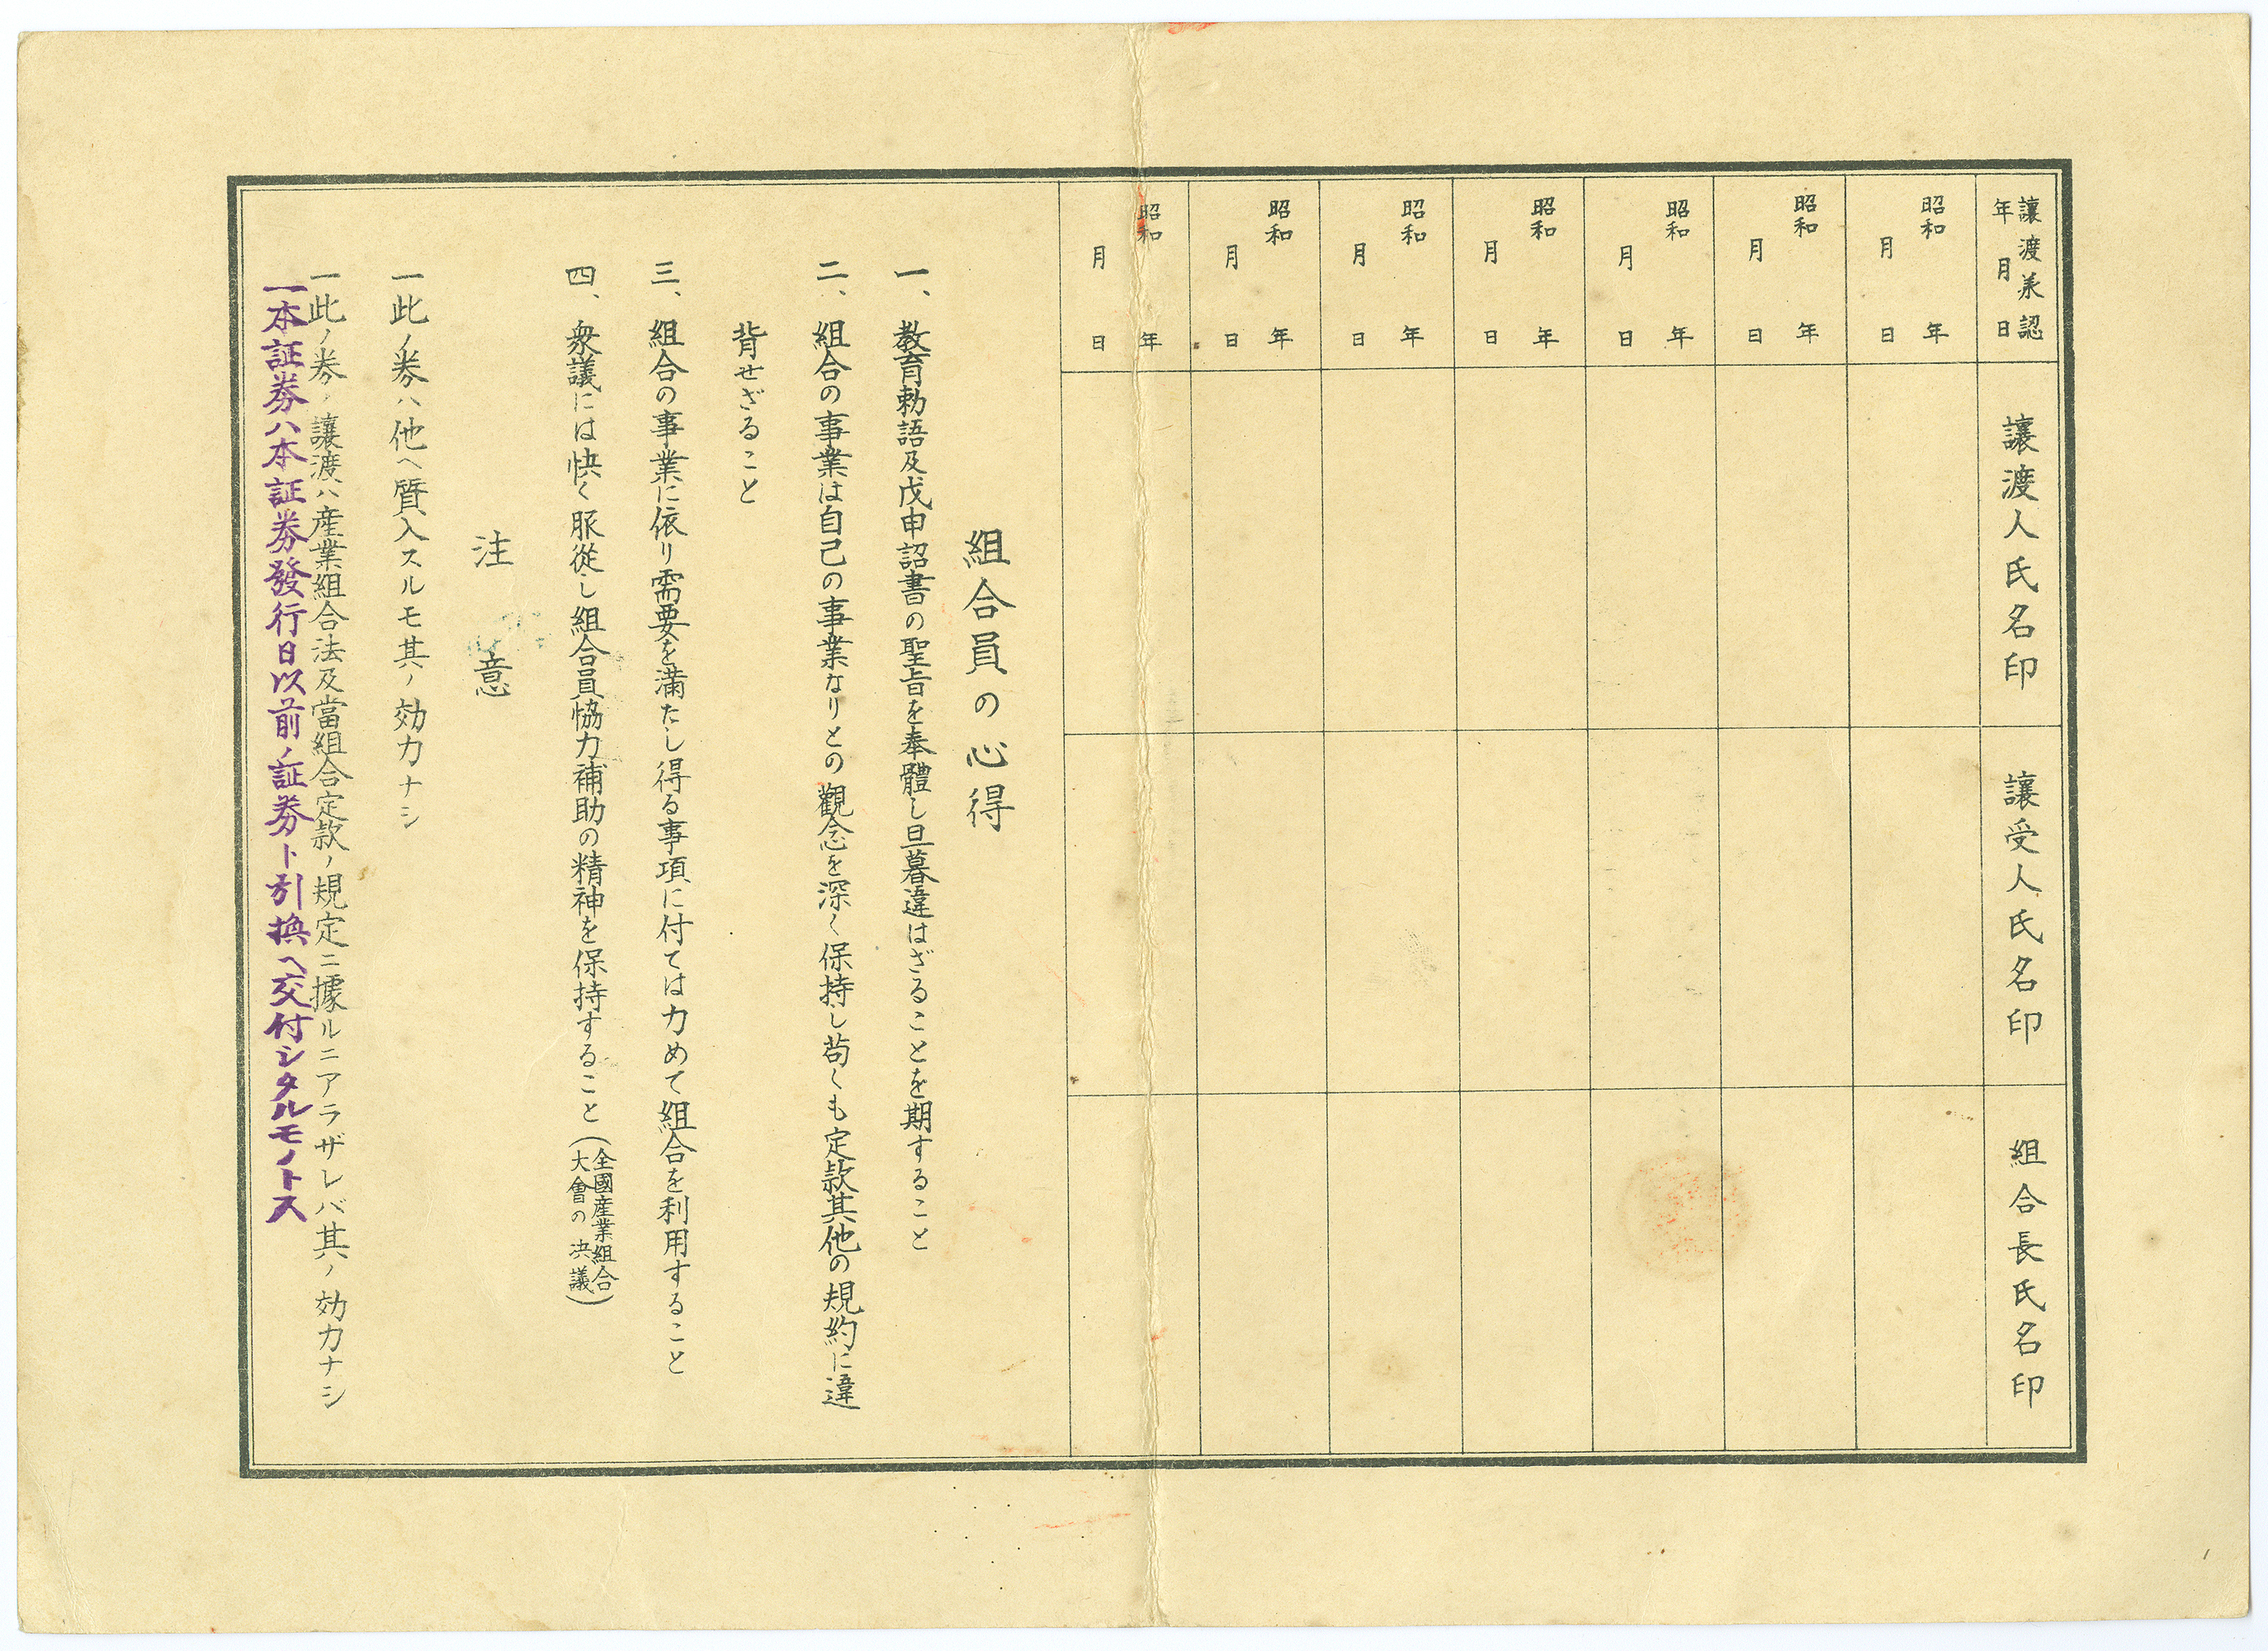 讓渡承認
年月日
讓渡人氏名印
讓受人氏名印
組合長氏名印
昭和 年
月 日
昭和 年
月 日
昭和 年
月 日
昭和 年
月 日
昭和 年
月 日
昭和 年
月 日
昭和 年
月 日
組合員の心得
一、教育勅語及戊申詔書の聖旨を奉體し旦暮違はざることを期すること
二、組合の事業は自己の事業なりとの觀念を深く保持し苟くも定款其他の規約に違
背せざること
三、組合の事業に依り需要を滿たし得る事項に付ては力めて組合を利用すること
四、衆議には快く服從し組合員協力補助の精神を保持すること(全國産業組合
大會の決議)
注意
一此ノ券ハ他ヘ質入スルモ其ノ効力ナシ
一此ノ券ノ讓渡ハ産業組合法及當組合定款ノ規定ニ據ルニアラザレバ其ノ効力ナシ
一本証券ハ本証券發行日以前ノ証券ト引換ヘ交付シタルモノトス